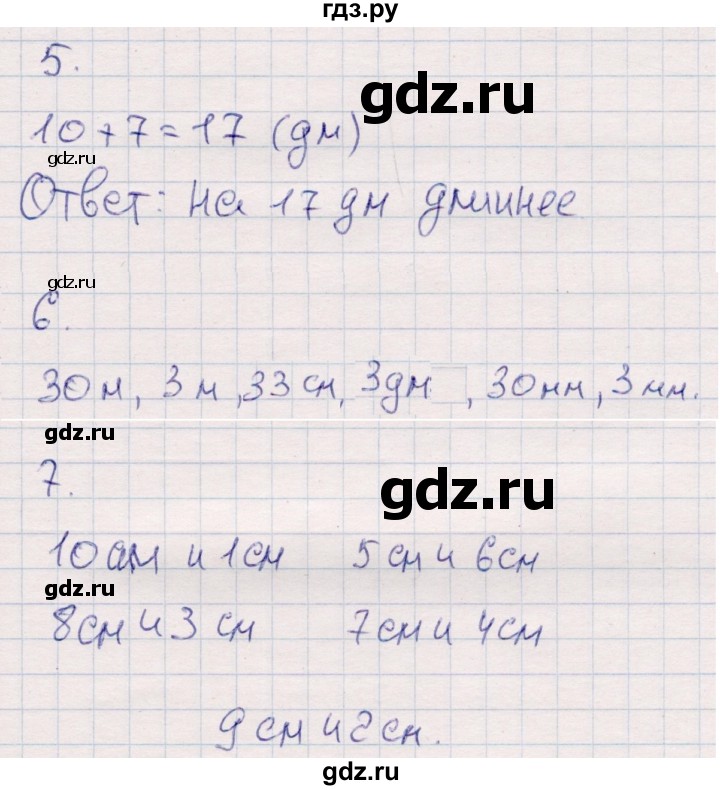 гдз.ру
5.
gdz.ru
10+7=17 (дм)
gdz.ru
Ответ: на 17 дм длиннее
gdz.ru
6.
30 м, 3 м, 33 см, 3 дм, 30 мм, 3 мм.
gdz.ru
7.
gdz.ru
10 см и 1 см 5 см и 6 см
gdz.ru
8 см и 3 см 7 см и 4 см
9 см и 2 см.
gdz.ru